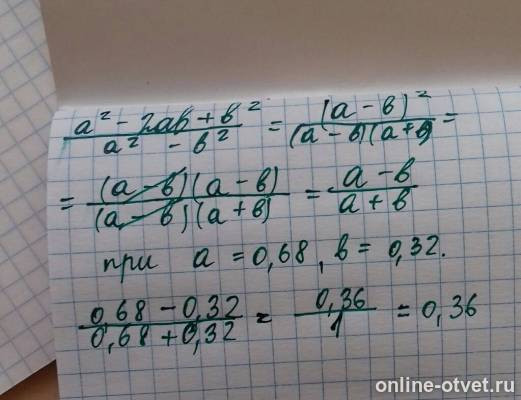 a² - 2ab + b² / a² - b² = (a - b)² / (a - b)(a + b) =
= (a - b)(a - b) / (a - b)(a + b) = a - b / a + b
при a = 0,68, b = 0,32.
0,68 - 0,32 / 0,68 + 0,32 = 0,36 / 1 = 0,36
online-otvet.ru